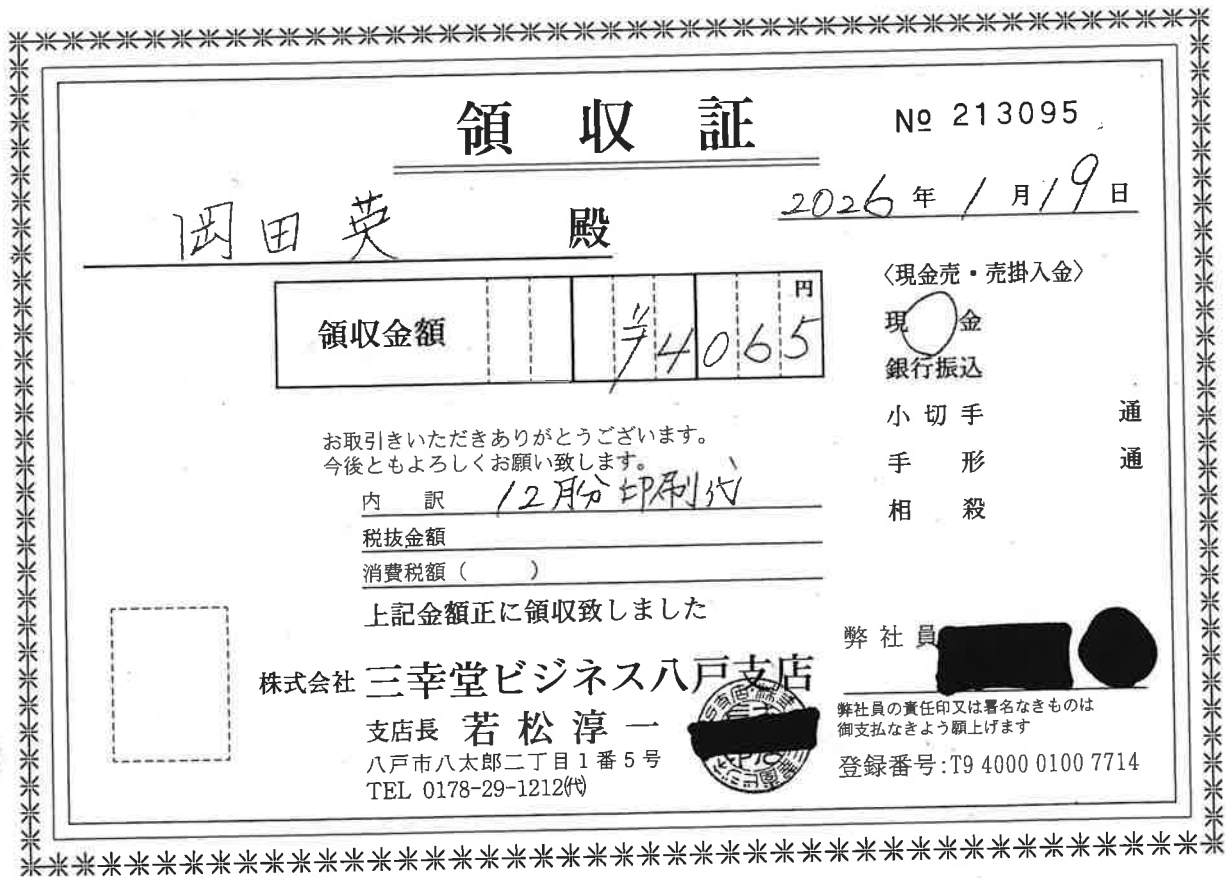 領収証
№ 213095
2026年1月19日
岡田英 殿
領収金額 ¥4065円
〈現金売・売掛入金〉
現金
銀行振込
小切手 通
手形 通
相殺
お取引きいただきありがとうございます。
今後ともよろしくお願い致します。
内訳 12月分印刷代
税抜金額
消費税額（ ）
上記金額正に領収致しました
株式会社 三幸堂ビジネス八戸支店
支店長 若松淳一
八戸市八太郎二丁目1番5号
TEL 0178-29-1212㈹
弊社員
弊社員の責任印又は署名なきものは
御支払なきよう願上げます
登録番号:T9 4000 0100 7714